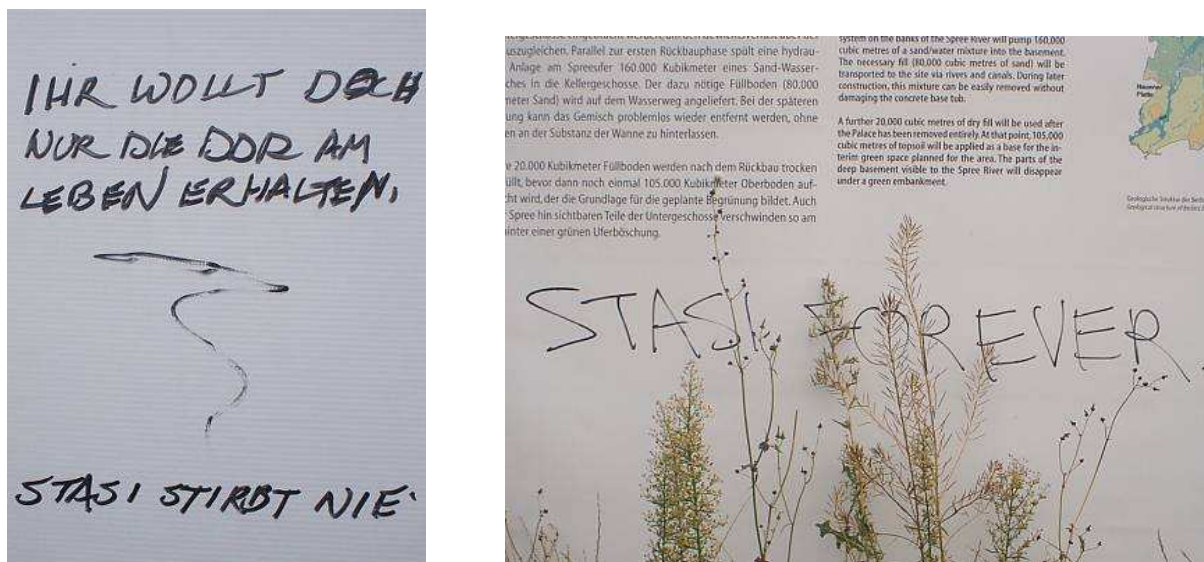 IHR WOLLT DOCH
NUR DIE DDR AM
LEBEN ERHALTEN.
STASI STIRBT NIE
uszugleichen. Parallel zur ersten Rückbauphase spült eine hydrau-
Anlage am Spreeufer 160.000 Kubikmeter eines Sand-Wasser-
ches in die Kellergeschosse. Der dazu nötige Füllboden (80.000
meter Sand) wird auf dem Wasserweg angeliefert. Bei der späteren
ung kann das Gemisch problemlos wieder entfernt werden, ohne
en an der Substanz der Wanne zu hinterlassen.
e 20.000 Kubikmeter Füllboden werden nach dem Rückbau trocken
üllt, bevor dann noch einmal 105.000 Kubikmeter Oberboden auf-
cht wird, der die Grundlage für die geplante Begrünung bildet. Auch
Spree hin sichtbaren Teile der Untergeschosse verschwinden so am
hinter einer grünen Uferböschung.
system on the banks of the Spree River will pump 160,000
cubic metres of a sand/water mixture into the basement.
The necessary fill (80,000 cubic metres of sand) will be
transported to the site via rivers and canals. During later
construction, this mixture can be easily removed without
damaging the concrete base tub.
A further 20,000 cubic metres of dry fill will be used after
the Palace has been removed entirely. At that point, 105,000
cubic metres of topsoil will be applied as a base for the in-
terim green space planned for the area. The parts of the
deep basement visible to the Spree River will disappear
under a green embankment.
STASI FOREVER